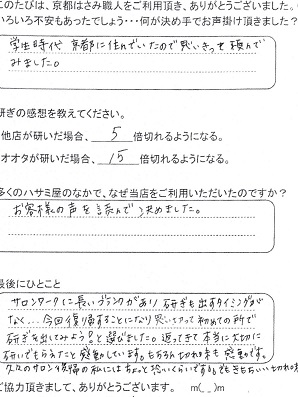 このたびは、京都はさみ職人をご利用頂き、ありがとうございました。
いろいろ不安もあったでしょう・・・何が決め手でお声掛け頂きました？
学生時代 京都に住んでいたので思いきって頼んで
みました。
研ぎの感想を教えてください。
他店が研いだ場合、 5 倍切れるようになる。
オオタが研いだ場合、 15 倍切れるようになる。
多くのハサミ屋のなかで、なぜ当店をご利用いただいたのですか？
お客様の声を読んで決めました。
最後にひとこと
サロンワークに長いブランクがあり 研ぎも出すタイミングが
なく... 今回復帰することになり思いきって初めての所で
研ぎを出してみよう！と選びました。返ってきて本当に大切に
研いでもらえたと感動しています。もちろん切れ味も感動です。
久々のサロン復帰の私にはちょっと恐いくらいです。でもきもちいい切れ味
ご協力頂きまして、ありがとうございます。 m(_ _)m